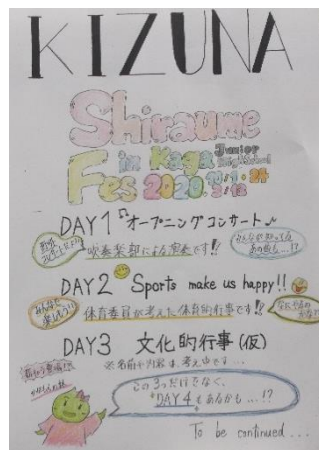 KIZUNA
Shiraume
Fes in Kaga Junior High School
2020.
DAY1 オープニングコンサート♪
吹奏楽部による演奏です!!
みんなが知ってる
あの曲も...!?
DAY2 Sports make us happy!!
みんなで
楽しもう!!
体育委員が考えた体育的行事です!!
DAY3 文化的行事(仮)
※名前や内容は、考え中です...
この3つだけでなく、
"DAY4"もあるかも...!?
To be continued...